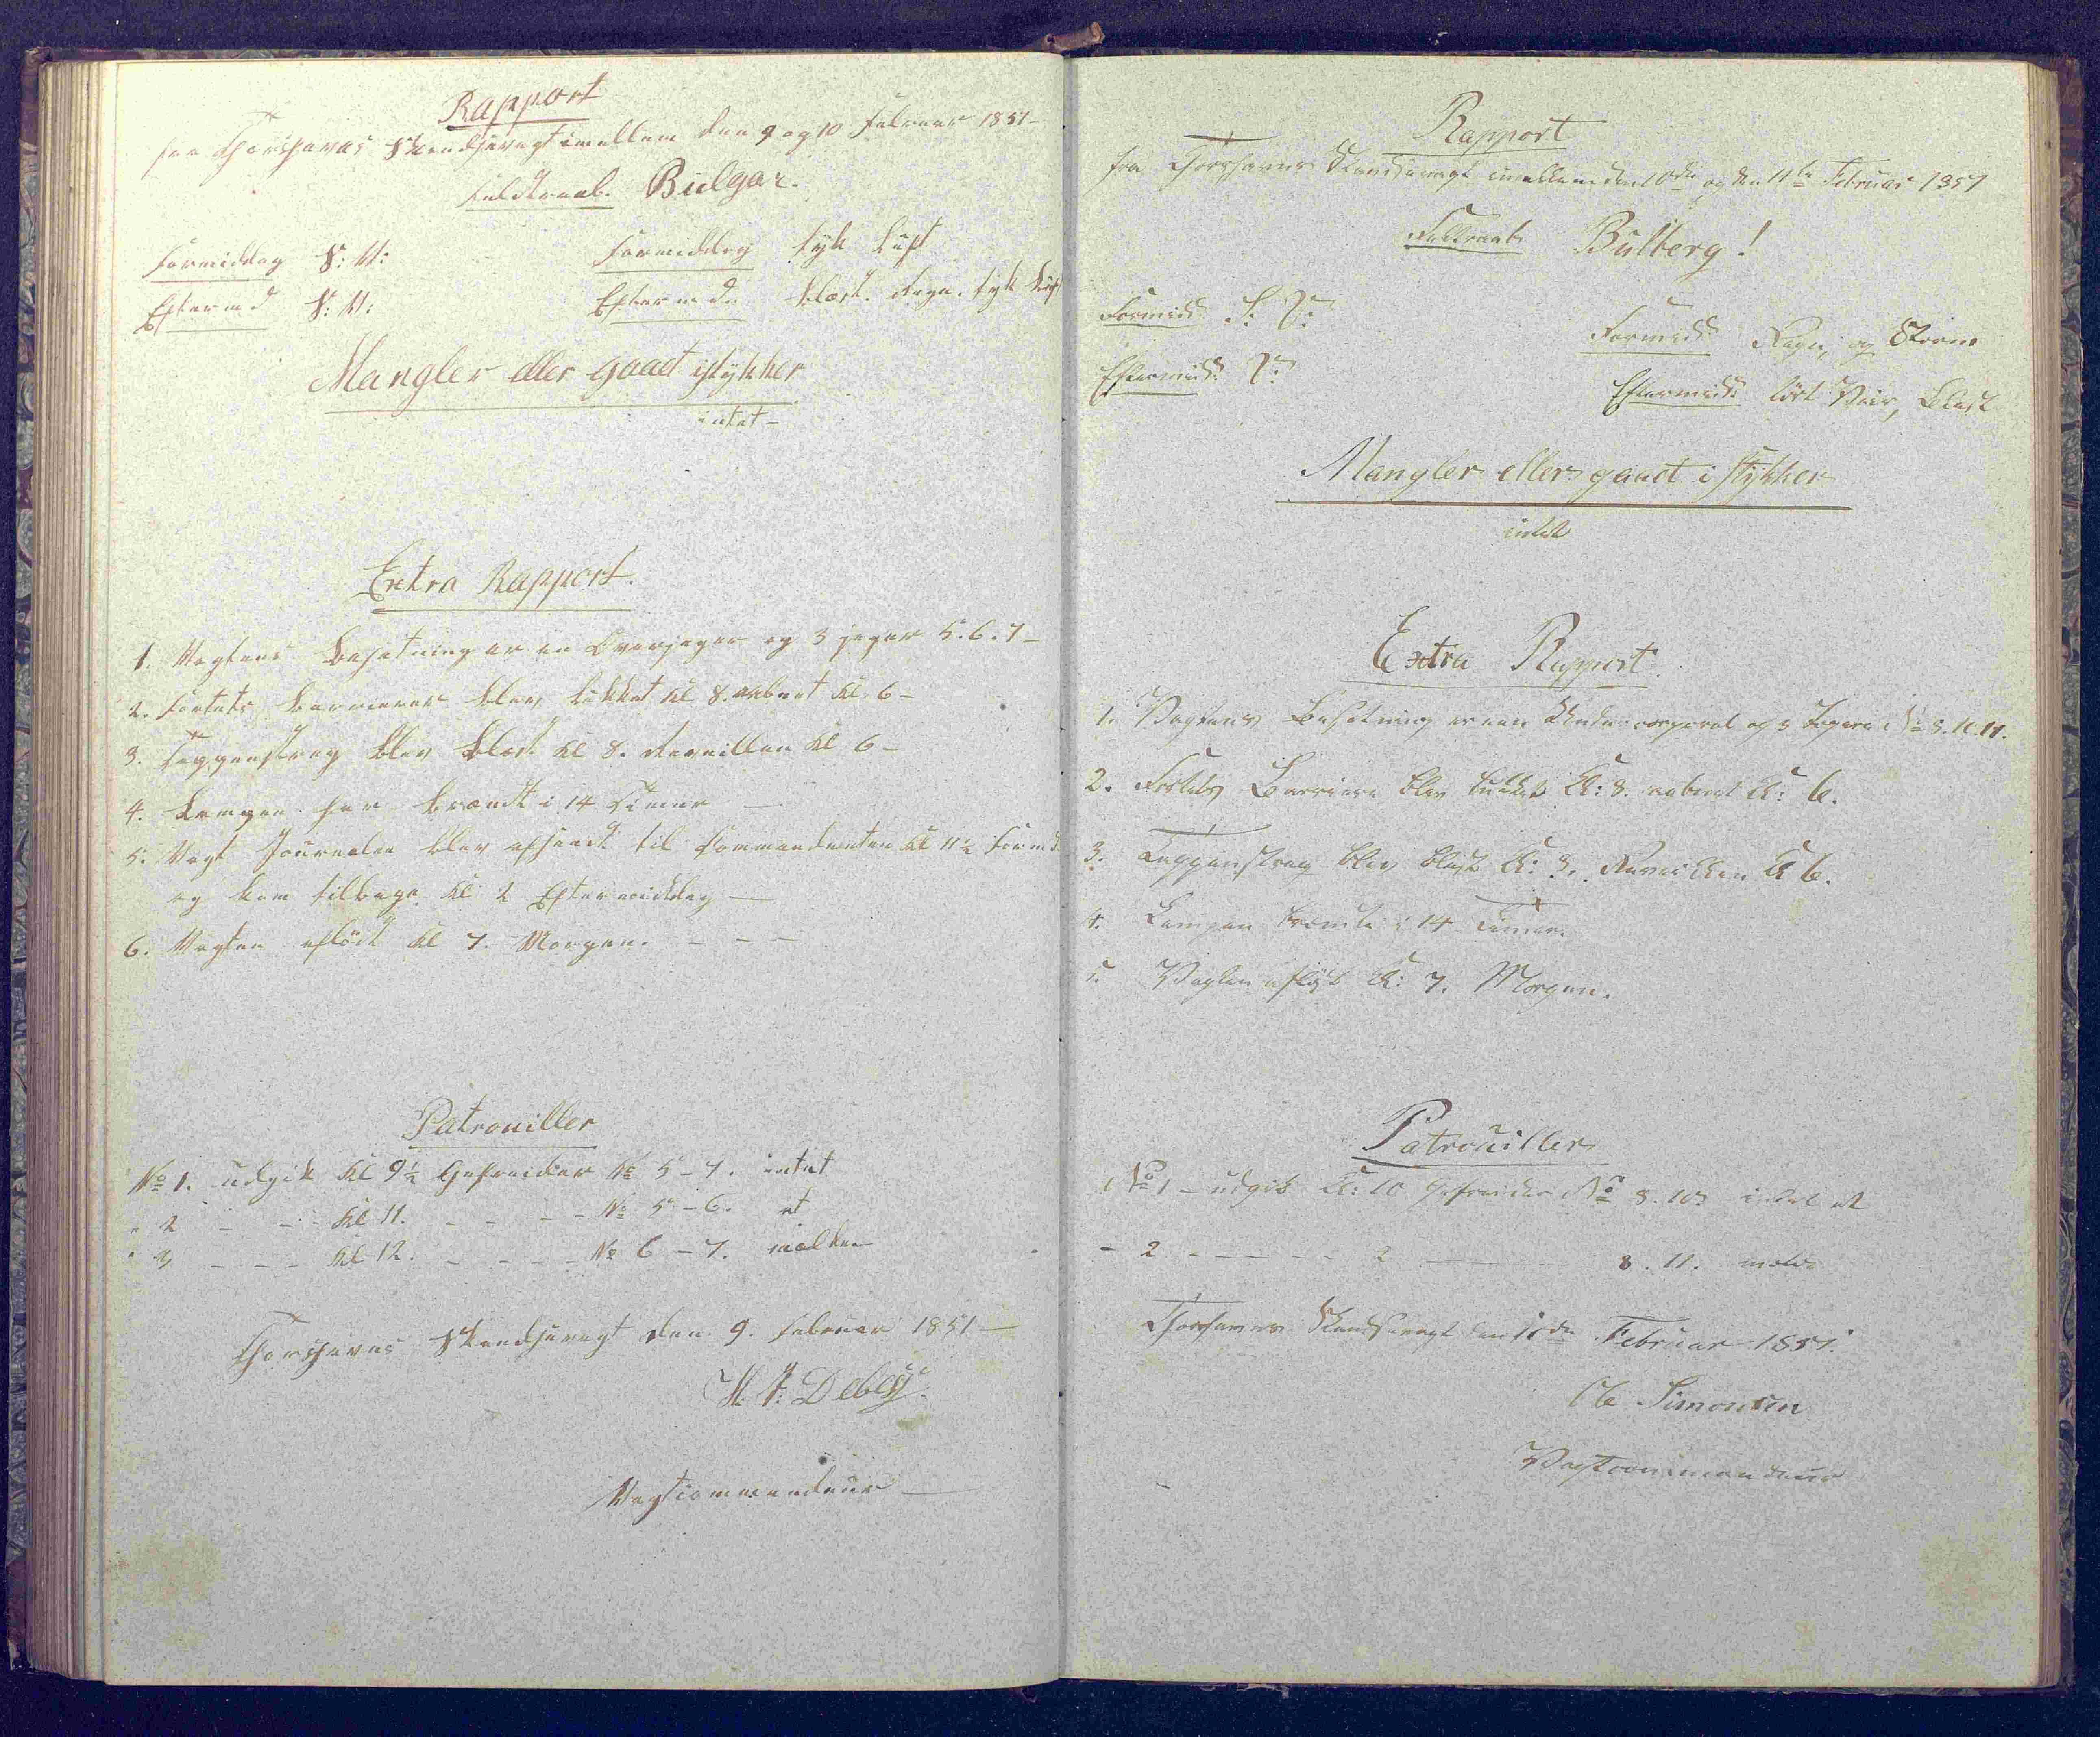 Rapport
fra Thorshavns Skandsevagt imellem den 9 og 10 Februar 1851-
Feldtraab. Bulgar.
Formiddag S: V: Formiddag tyk Luft
Efterm d S: V: Efterm d. blæst. Regn. tyk Luft
Mangler eller gaaet istykker
intet-
Extra Rapport.
1. Vagtens Besætning er en Overjæger og 3 jæger 5. 6. 7-
2. Fortets Barrierer blev lukket Kl 8. aabnet Kl. 6-
3. Tappenstreg blev blæst Kl 8. Reveillen Kl 6-
4. Lampen har brændt i 14 Timer -
5. Vagt Journalen blev afsendt til Commandanten Kl 11½ Formd.
og kom tilbage Kl 2 Eftermiddag -
6. Vagten afløst Kl 7. Morgen. - - -
Patrouiller
No 1. udgik Kl 9½ Gefreider No 5-7. intet
" 2 - - - Kl 11. - - - - No 5-6. at
" 3 - - - Kl 12. - - - - No 6-7. melde
Thorshavns Skandsevagt den 9. Februar 1851-
Debes.
Vagtcommandeur -
Rapport
fra Thorshavns Skandsevagt imellem den 10de og den 11te Februar 1851
Feltraab Bulberg!
Formidd: S: V: Formidd: Regn, og Storm
Eftermidd: V: Eftermidd: tört Veir, Blæst
Mangler eller gaaet i stykker
intet
Extra Rapport.
1. Vagtens Besætning er een Undercorporal og 3 Jægere No 8. 10. 11.
2. Fortets Barriere blev lukket Kl: 8. aabnet Kl: 6.
3. Tappenstreg blev blæst Kl: 8. Reveillen Kl 6.
4. Lampen brændte i 14 Timer.
5. Vagten afløst Kl: 7. Morgen.
Patrouiller
No 1 - udgik Kl: 10 Gefreider No 8. 10. intet at
- 2 - - - - - 2 - 8. 11. melde
Thorshavns Skandsevagt den 10de Februar 1851.
Simonsen
Vagtcommandeur